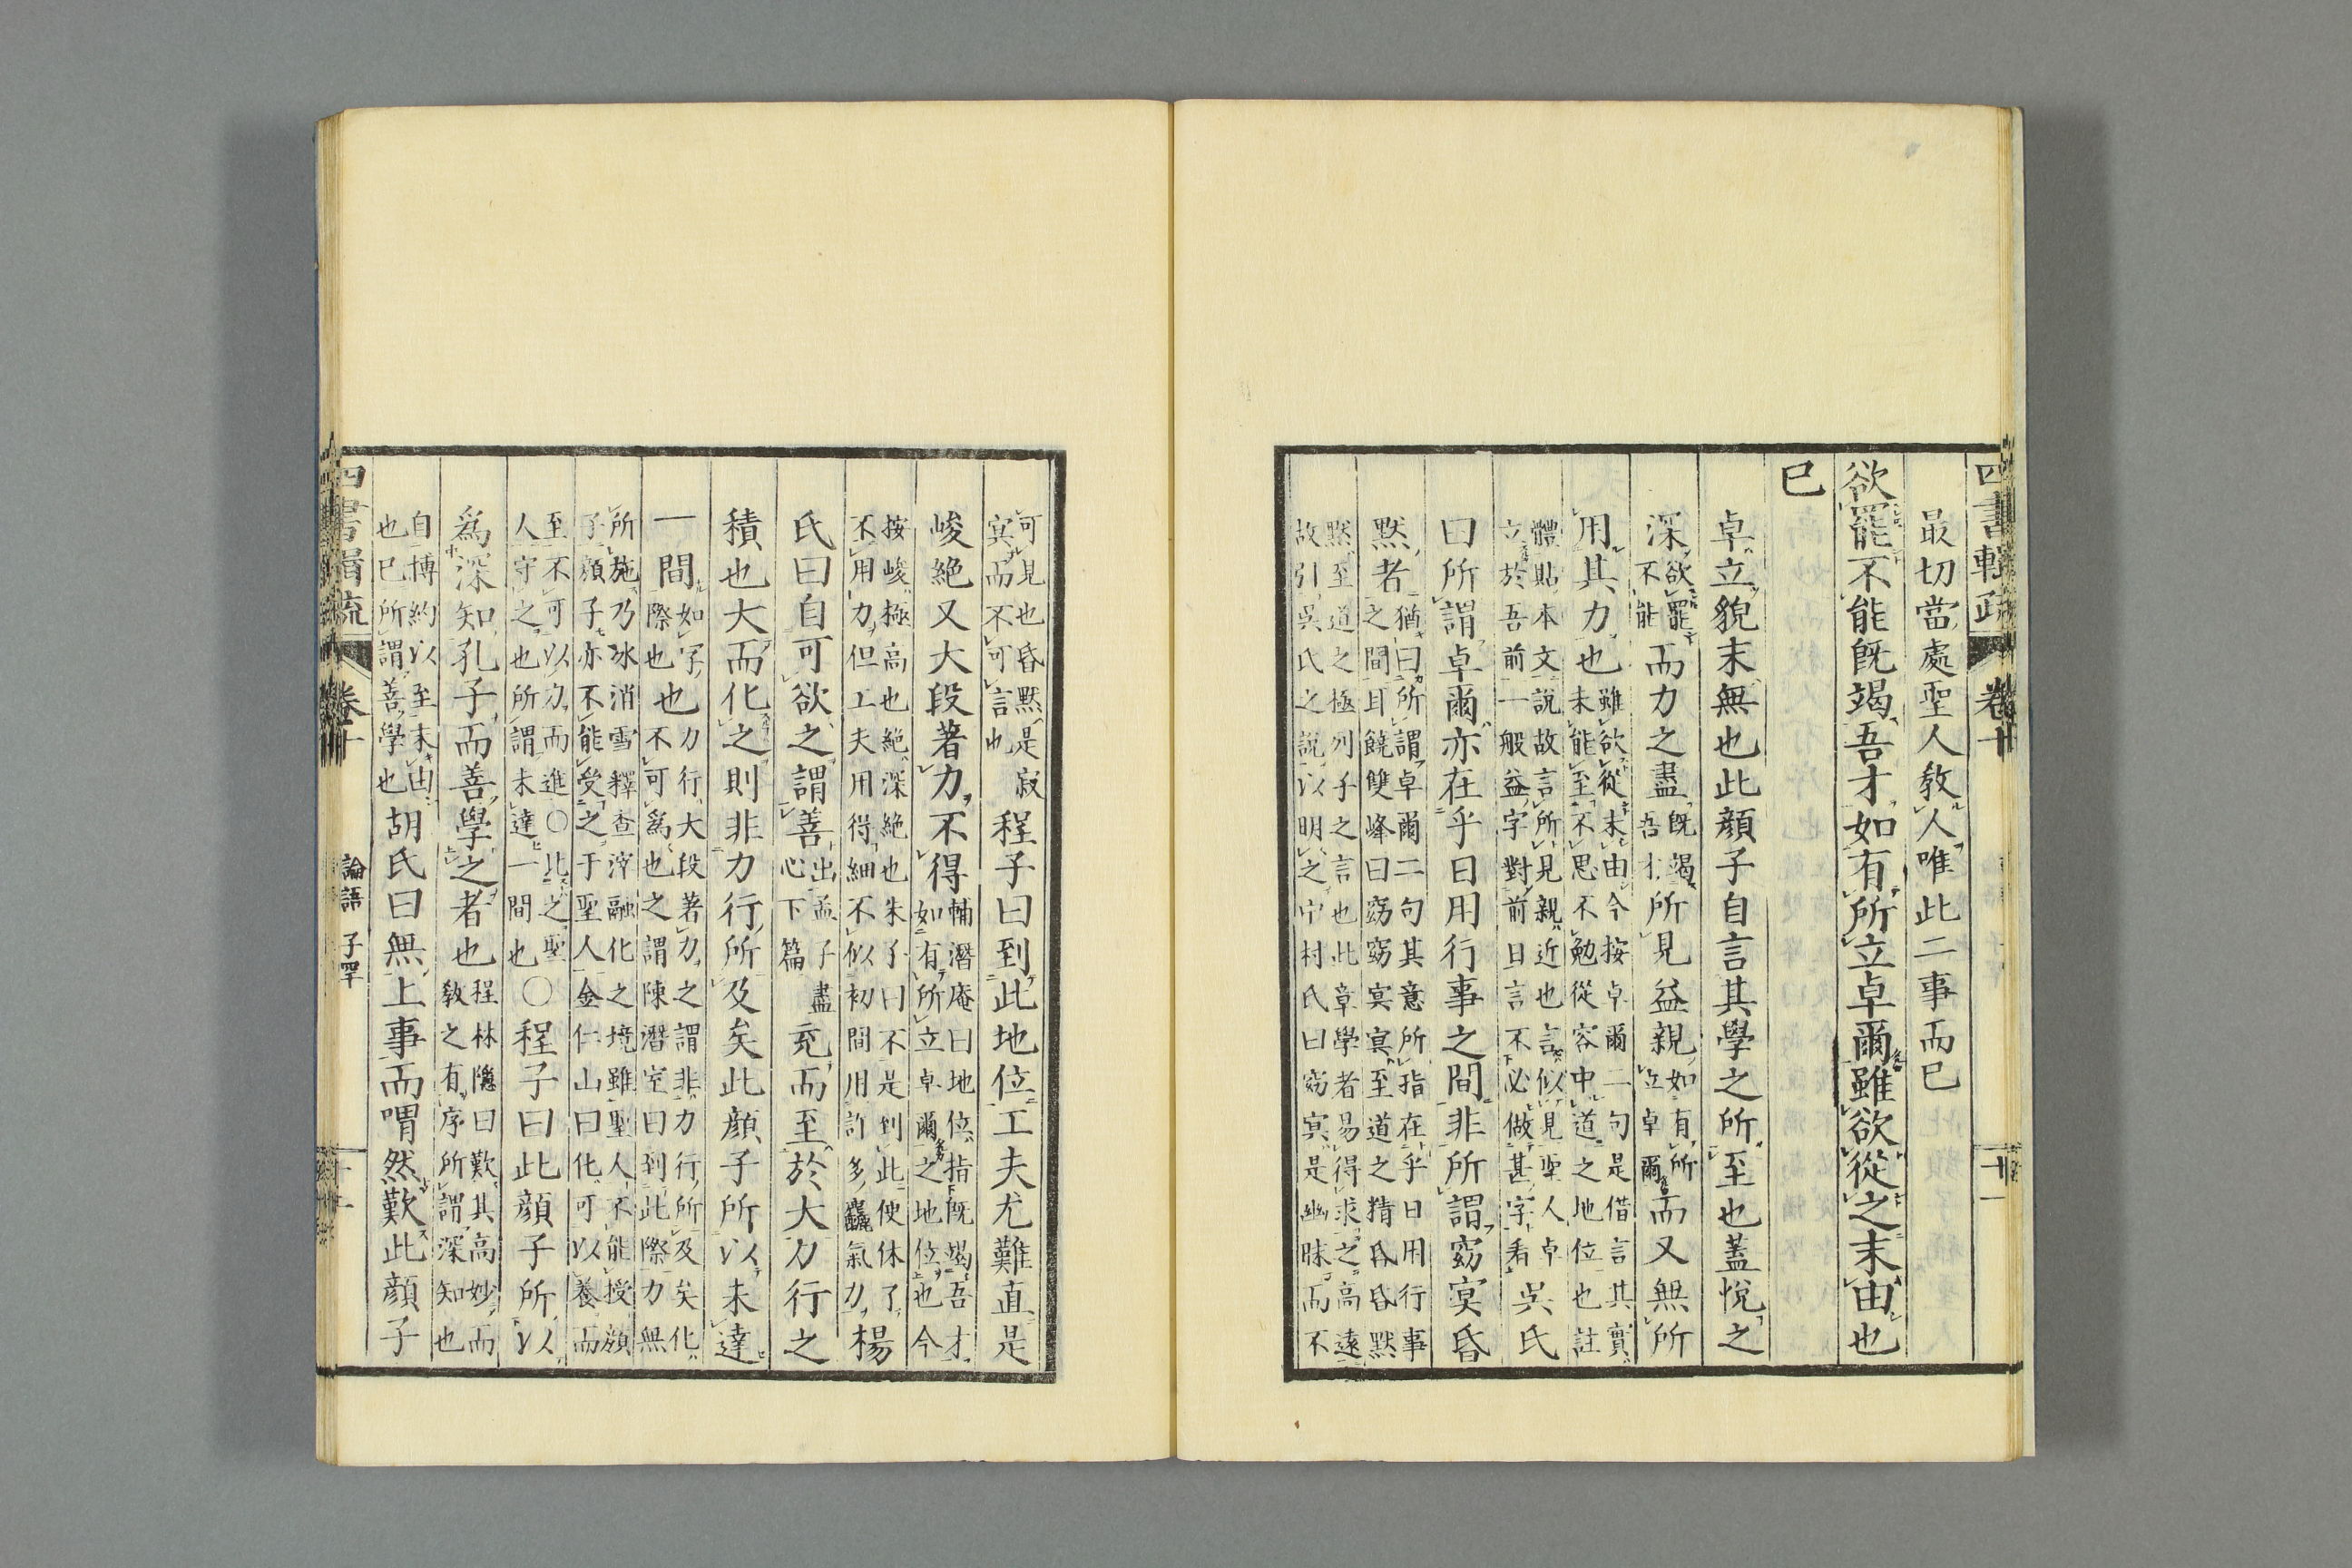 四書輯疏 卷十 十一
最切當處聖人敎人唯此二事而已
欲罷不能旣竭吾才如有所立卓爾雖欲從之末由也
已
卓立貌末無也此顔子自言其學之所至也蓋悅之
深欲罷不能而力之盡旣竭吾才所見益親如有所立卓爾而又無所
用其力也雖欲從末由今按卓爾二句是借言其實未能至不思不勉從容中道之地位也註
體貼本文說故言所見親近也言似見聖人卓立於吾前一般益字對前日言不必做甚字看吳氏
曰所謂卓爾亦在乎日用行事之間非所謂窈冥昏
默者猶曰所謂卓爾二句其意所指在乎日用行事之間耳饒雙峰曰窈窈冥冥至道之精昏昏默
默至道之極列子之言也此章學者易得求之高遠故引吳氏之說以明之中村氏曰窈冥是幽昧而不
可見也昏默是寂冥而不可言也程子曰到此地位工夫尤難直是
峻絶又大段著力不得輔潛庵曰地位指旣竭吾才如有所立卓爾之地位也今
按峻極高也絶深絶也朱子曰不是到此便休了不用力但工夫用得細不似初間用許多麤氣力楊
氏曰自可欲之謂善出孟子盡心下篇充而至於大力行之
積也大而化之則非力行所及矣此顔子所以未達
一間如字際也也力行大段著力之謂非力行所及矣化不可爲也之謂陳潛室曰到此際力無
所施乃冰消雪釋查滓融化之境雖聖人不能授顔子顔子亦不能受之于聖人金仁山曰化可以養而
至不可以力而進〇此之聖人守之也所謂未達一間也〇程子曰此顔子所以
爲深知孔子而善學之者也程林隱曰歎其高妙而敎之有序所謂深知也
自博約以至末由也已所謂善學也胡氏曰無上事而喟然歎此顔子
四書輯疏 卷十 論語 子罕 十一